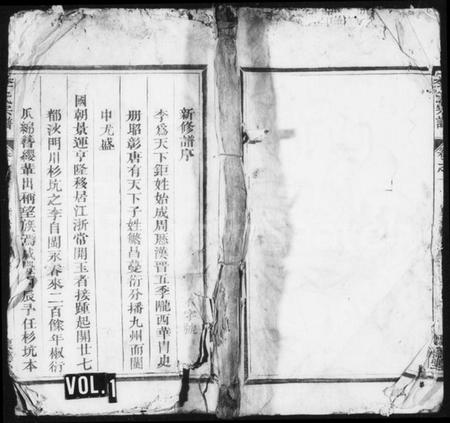 新修譜序
李爲天下鉅姓始成周歷漢晉五季隴西華胄史
册昭彰唐有天下子姓繁昌蔓衍分播九州而閩
中尤盛
國朝景運亨隆移居江浙常開玉者接踵起開廿七
都汰門川杉坑之李自閩永春來二百餘年椒衍
瓜綿簪纓輩出稱望族焉歲 辰予任杉坑本
VOL. 1